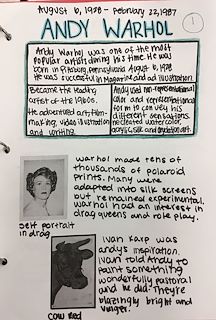 August 6, 1928 - February 22, 1987
1
ANDY WARHOL
Andy Warhol was one of the most
popular artists during his time. He was
born in Pittsburg, Pennsylvania August 6, 1928
He was successful in Magazine and ad illustration.
Became the leading
artist of the 1960s.
He adventured art, film-
making, video illustration
and writing
Andy used non-representational
color and representational
for m to convey his
different sensations.
He created water color,
acrylic, silk and
warhol made tens of
thousands of polaroid
prints. Many were
adapted into silk screens
but remained experimental.
warhol had an interest in
drag queens and role play.
self portrait
in drag
Ivan Karp was
andys inspiration.
Ivan told Andy to
paint something
wonderfully pastoral
and he did. They're
blazingly bright and
vulger.
cow red